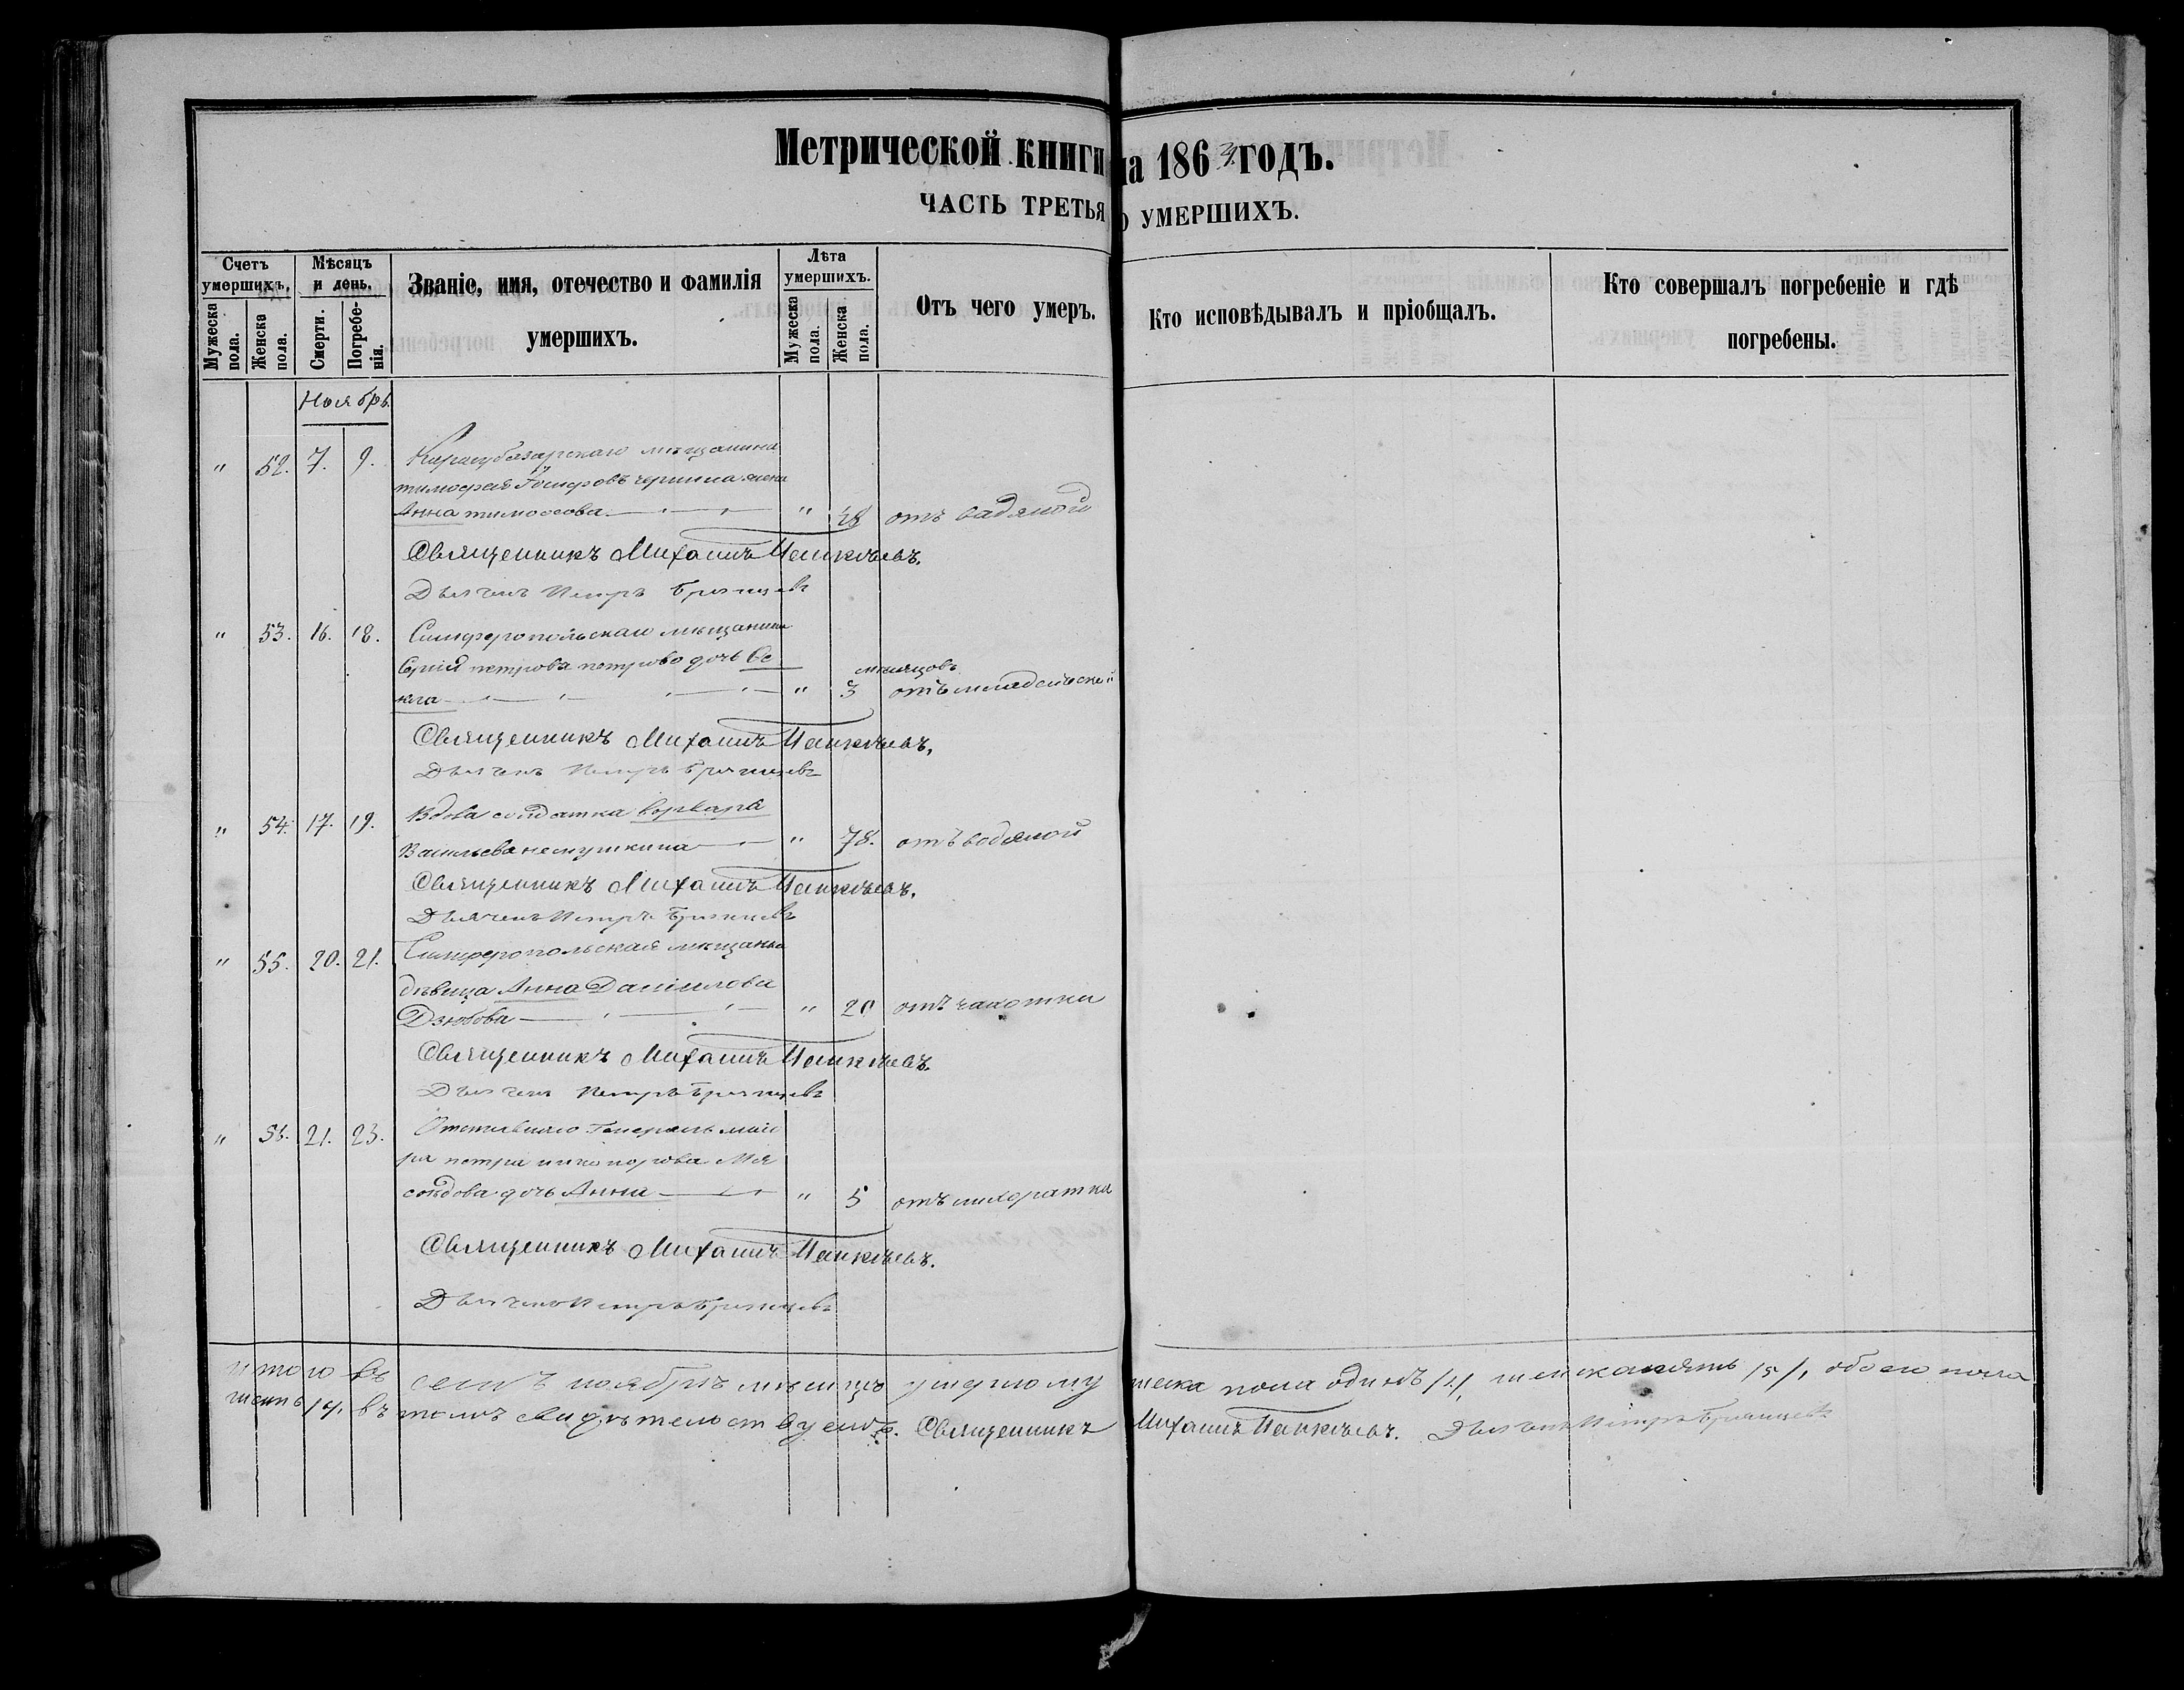 Метрической книги на 1864 годъ.
ЧАСТЬ ТРЕТЬЯ О УМЕРШИХЪ.
Счетъ умершихъ.
Мужеска пола.
Женска пола.
Мѣсяцъ и день.
Смерти.
Погребенія.
Званіе, имя, отечество и фамилія
умершихъ.
Лѣта умершихъ.
Мужеска пола.
Женска пола.
Отъ чего умеръ.
Кто исповѣдывалъ и пріобщалъ.
Кто совершалъ погребеніе и гдѣ
погребены.
Ноябрь.
" 52. 7. 9. Карасубазарскаго мѣщанина
тимофея Іосифовъ жена
Анна тимофеева " 48 отъ вадяной
Священникъ Михаилъ
Дьячекъ Петръ Брянцевъ
" 53. 16. 18. Симферопольскаго мѣщанина
Сергія петрова петрово дочь Фе
кла " мѣсяцовъ 3 отъ младенческой
Священникъ Михаилъ
Дьячекъ Петръ Брянцевъ
" 54. 17. 19. Вдова солдатка ворвара
Васильева немушкина " 78. отъ водяной
Священникъ Михаилъ
Дьячекъ Петръ Брянцевъ
" 55. 20. 21. Симферопольская мѣщанка
дѣвица Анна Даніилова
Дзюбова " 20 отъ чахотки
Священникъ Михаилъ
Дьячекъ Петръ Брянцевъ
" 56. 21. 23. Отставнаго Генералъ маіо
ра петра никонорова Мя
соѣдова дочь Анна " 5 отъ лихоратки
Священникъ Михаилъ
Дьячекъ Петръ Брянцевъ
итого въ семъ ноябрѣ мѣсяцѣ умерло мужеска пола одинъ /1/, женска пять /5/, обоего пола
шесть въ томъ свидѣтелствуемъ. Священникъ Михаилъ Дьячекъ Петръ Брянцевъ